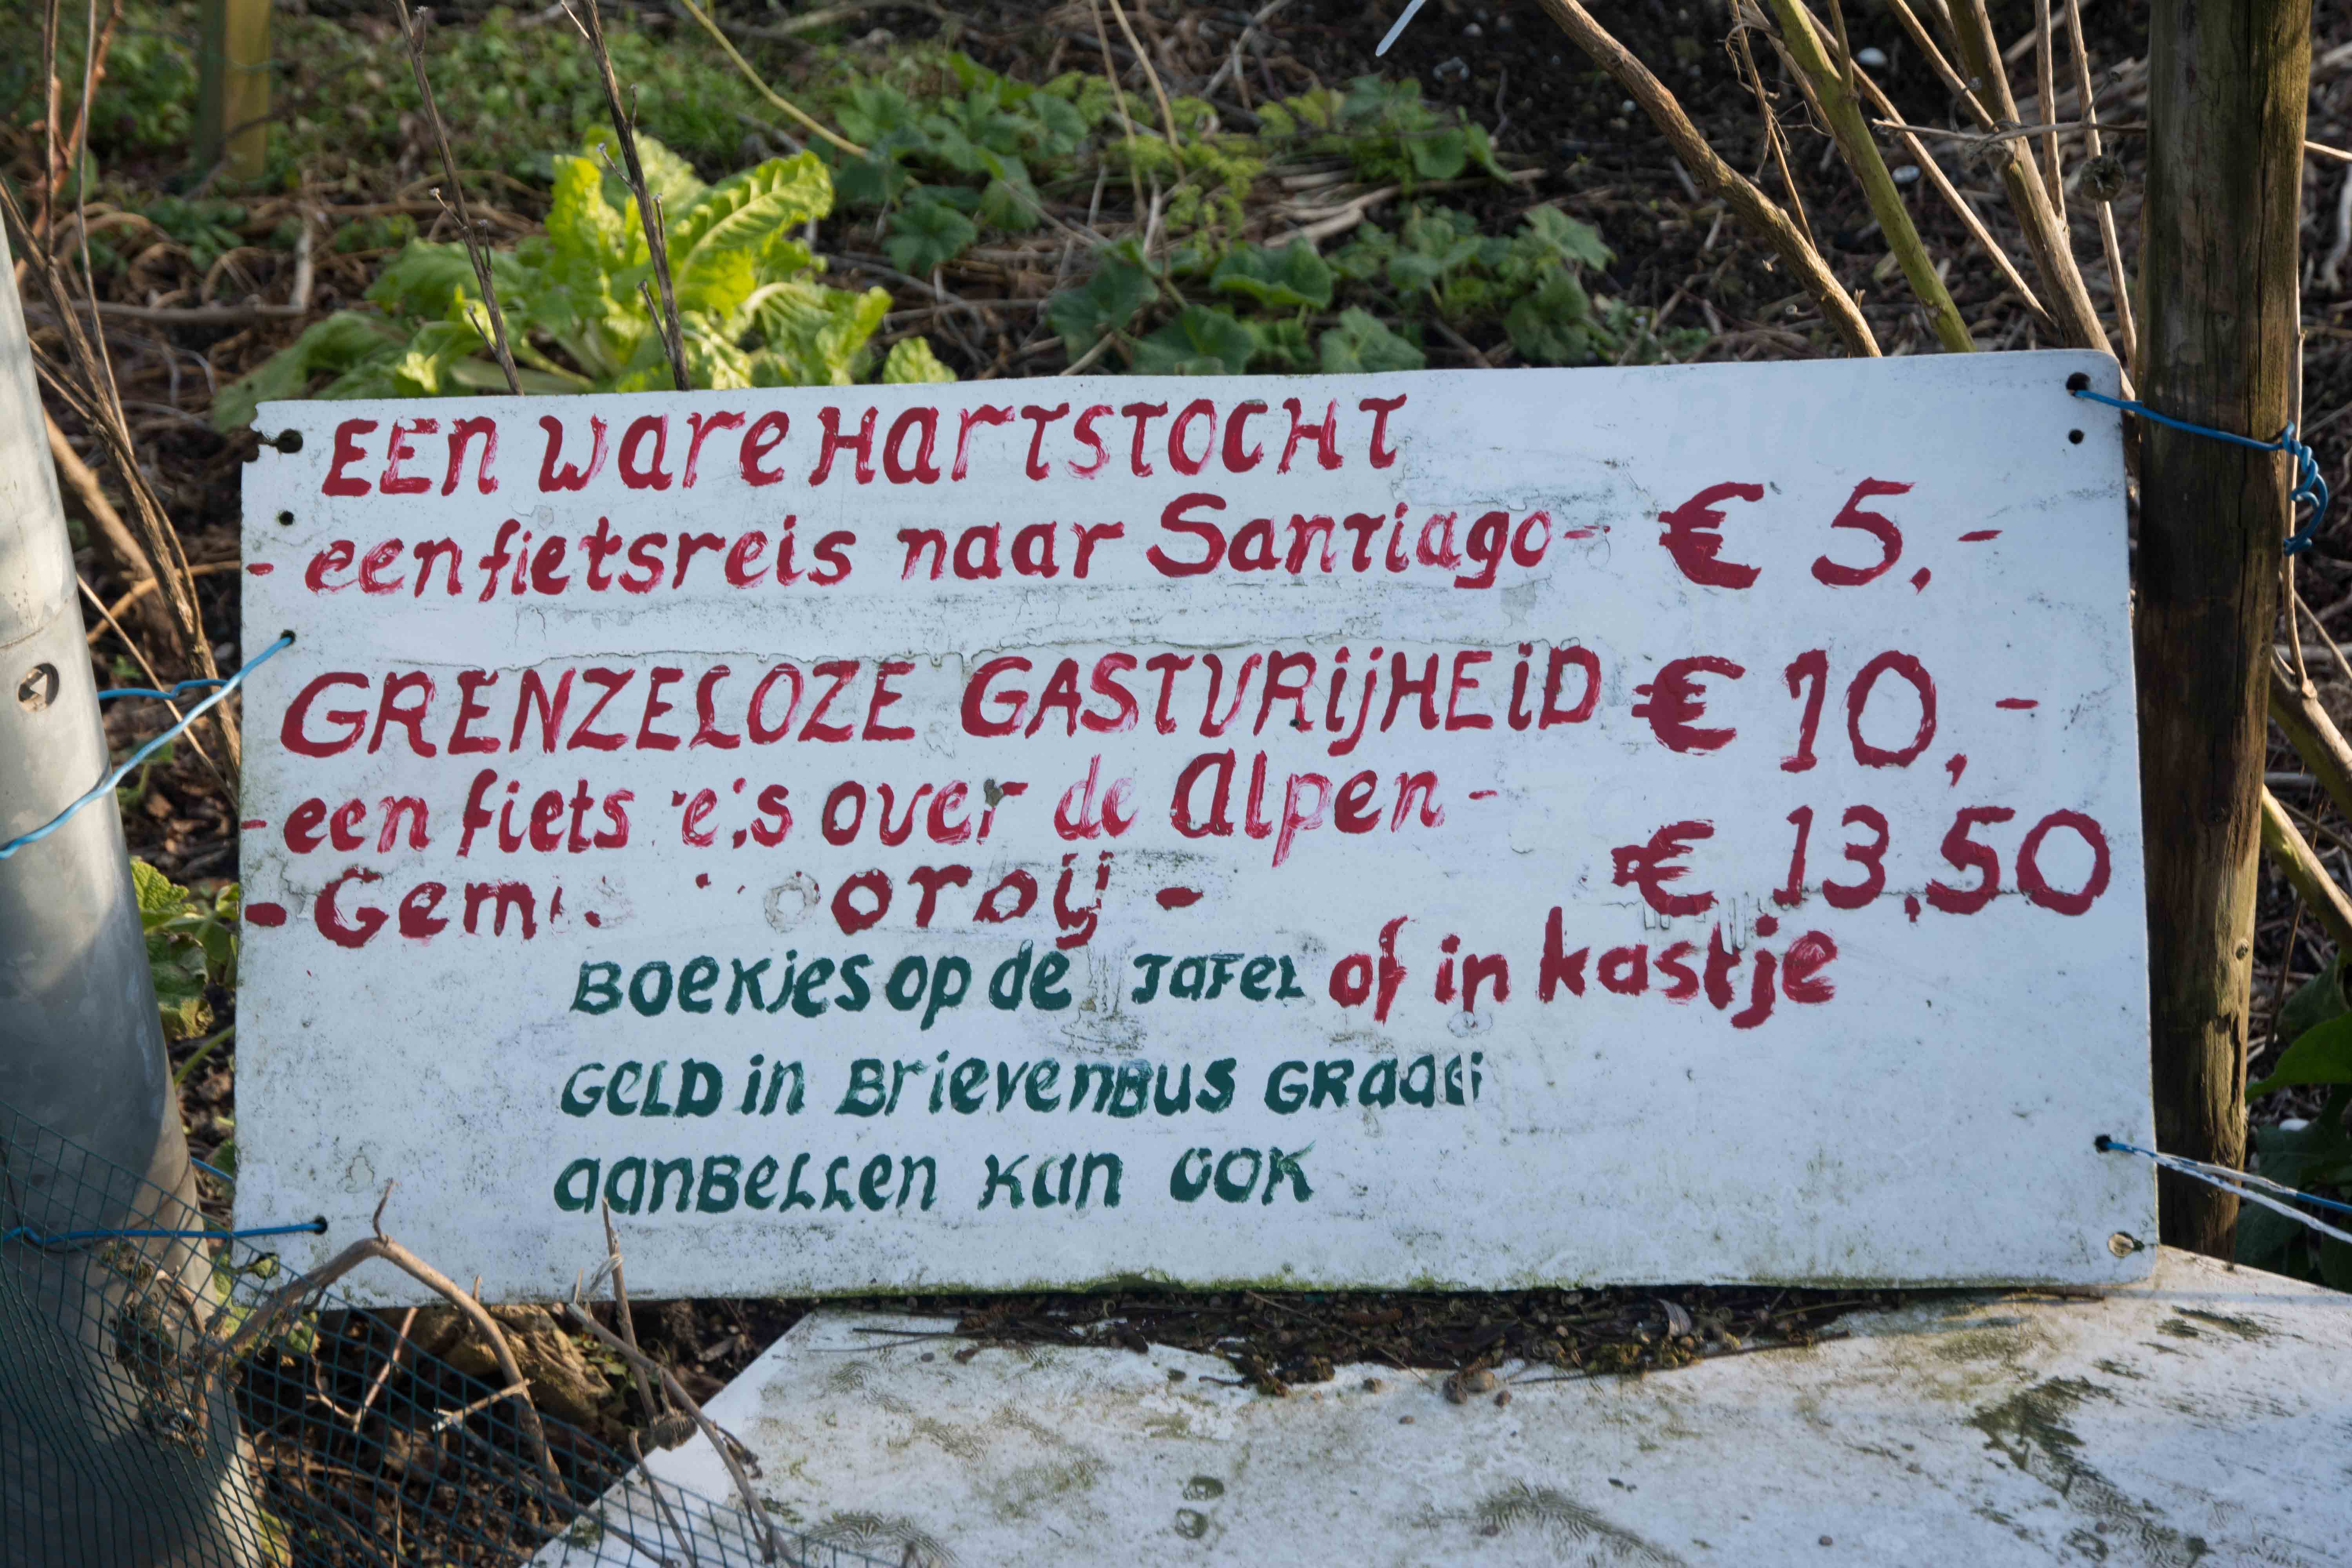 EEN ware HarTSTOCHT
- een fietsreis naar Santiago - € 5,-
GRENZELOZE GASTVRIJHEID € 10,-
- een fiets over de Alpen -
€ 13,50
BOEKJES op de TAFEL of in kastje
GELD in BrievenBUS GRAAG
aanBELLEN KAN OOK